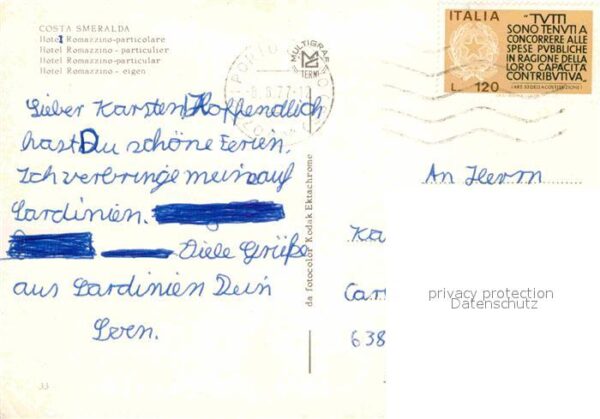 COSTA SMERALDA
Hotel Romazzino-particolare
Hotel Romazzino - particulier
Hotel Romazzino-particular
Hotel Romazzino - eigen
MULTIGRAF
TERNI
8.77-12
ITALIA
"TVTTI
SONO TENVTI A
CONCORRERE ALLE
SPESE PVBBLICHE
IN RAGIONE DELLA
LORO CAPACITÀ
CONTRIBVTIVA„
L. 120
Lieber Karsten Hoffendlich
hast Du schöne Ferien.
Ich verbringe mein auf
Sardinien.
Viele Grüße
aus Sardinien Dein
Sven.
da fotocolor Kodak Ektachrome
An Herrn
Ka
Car
638
privacy protection
Datenschutz
33